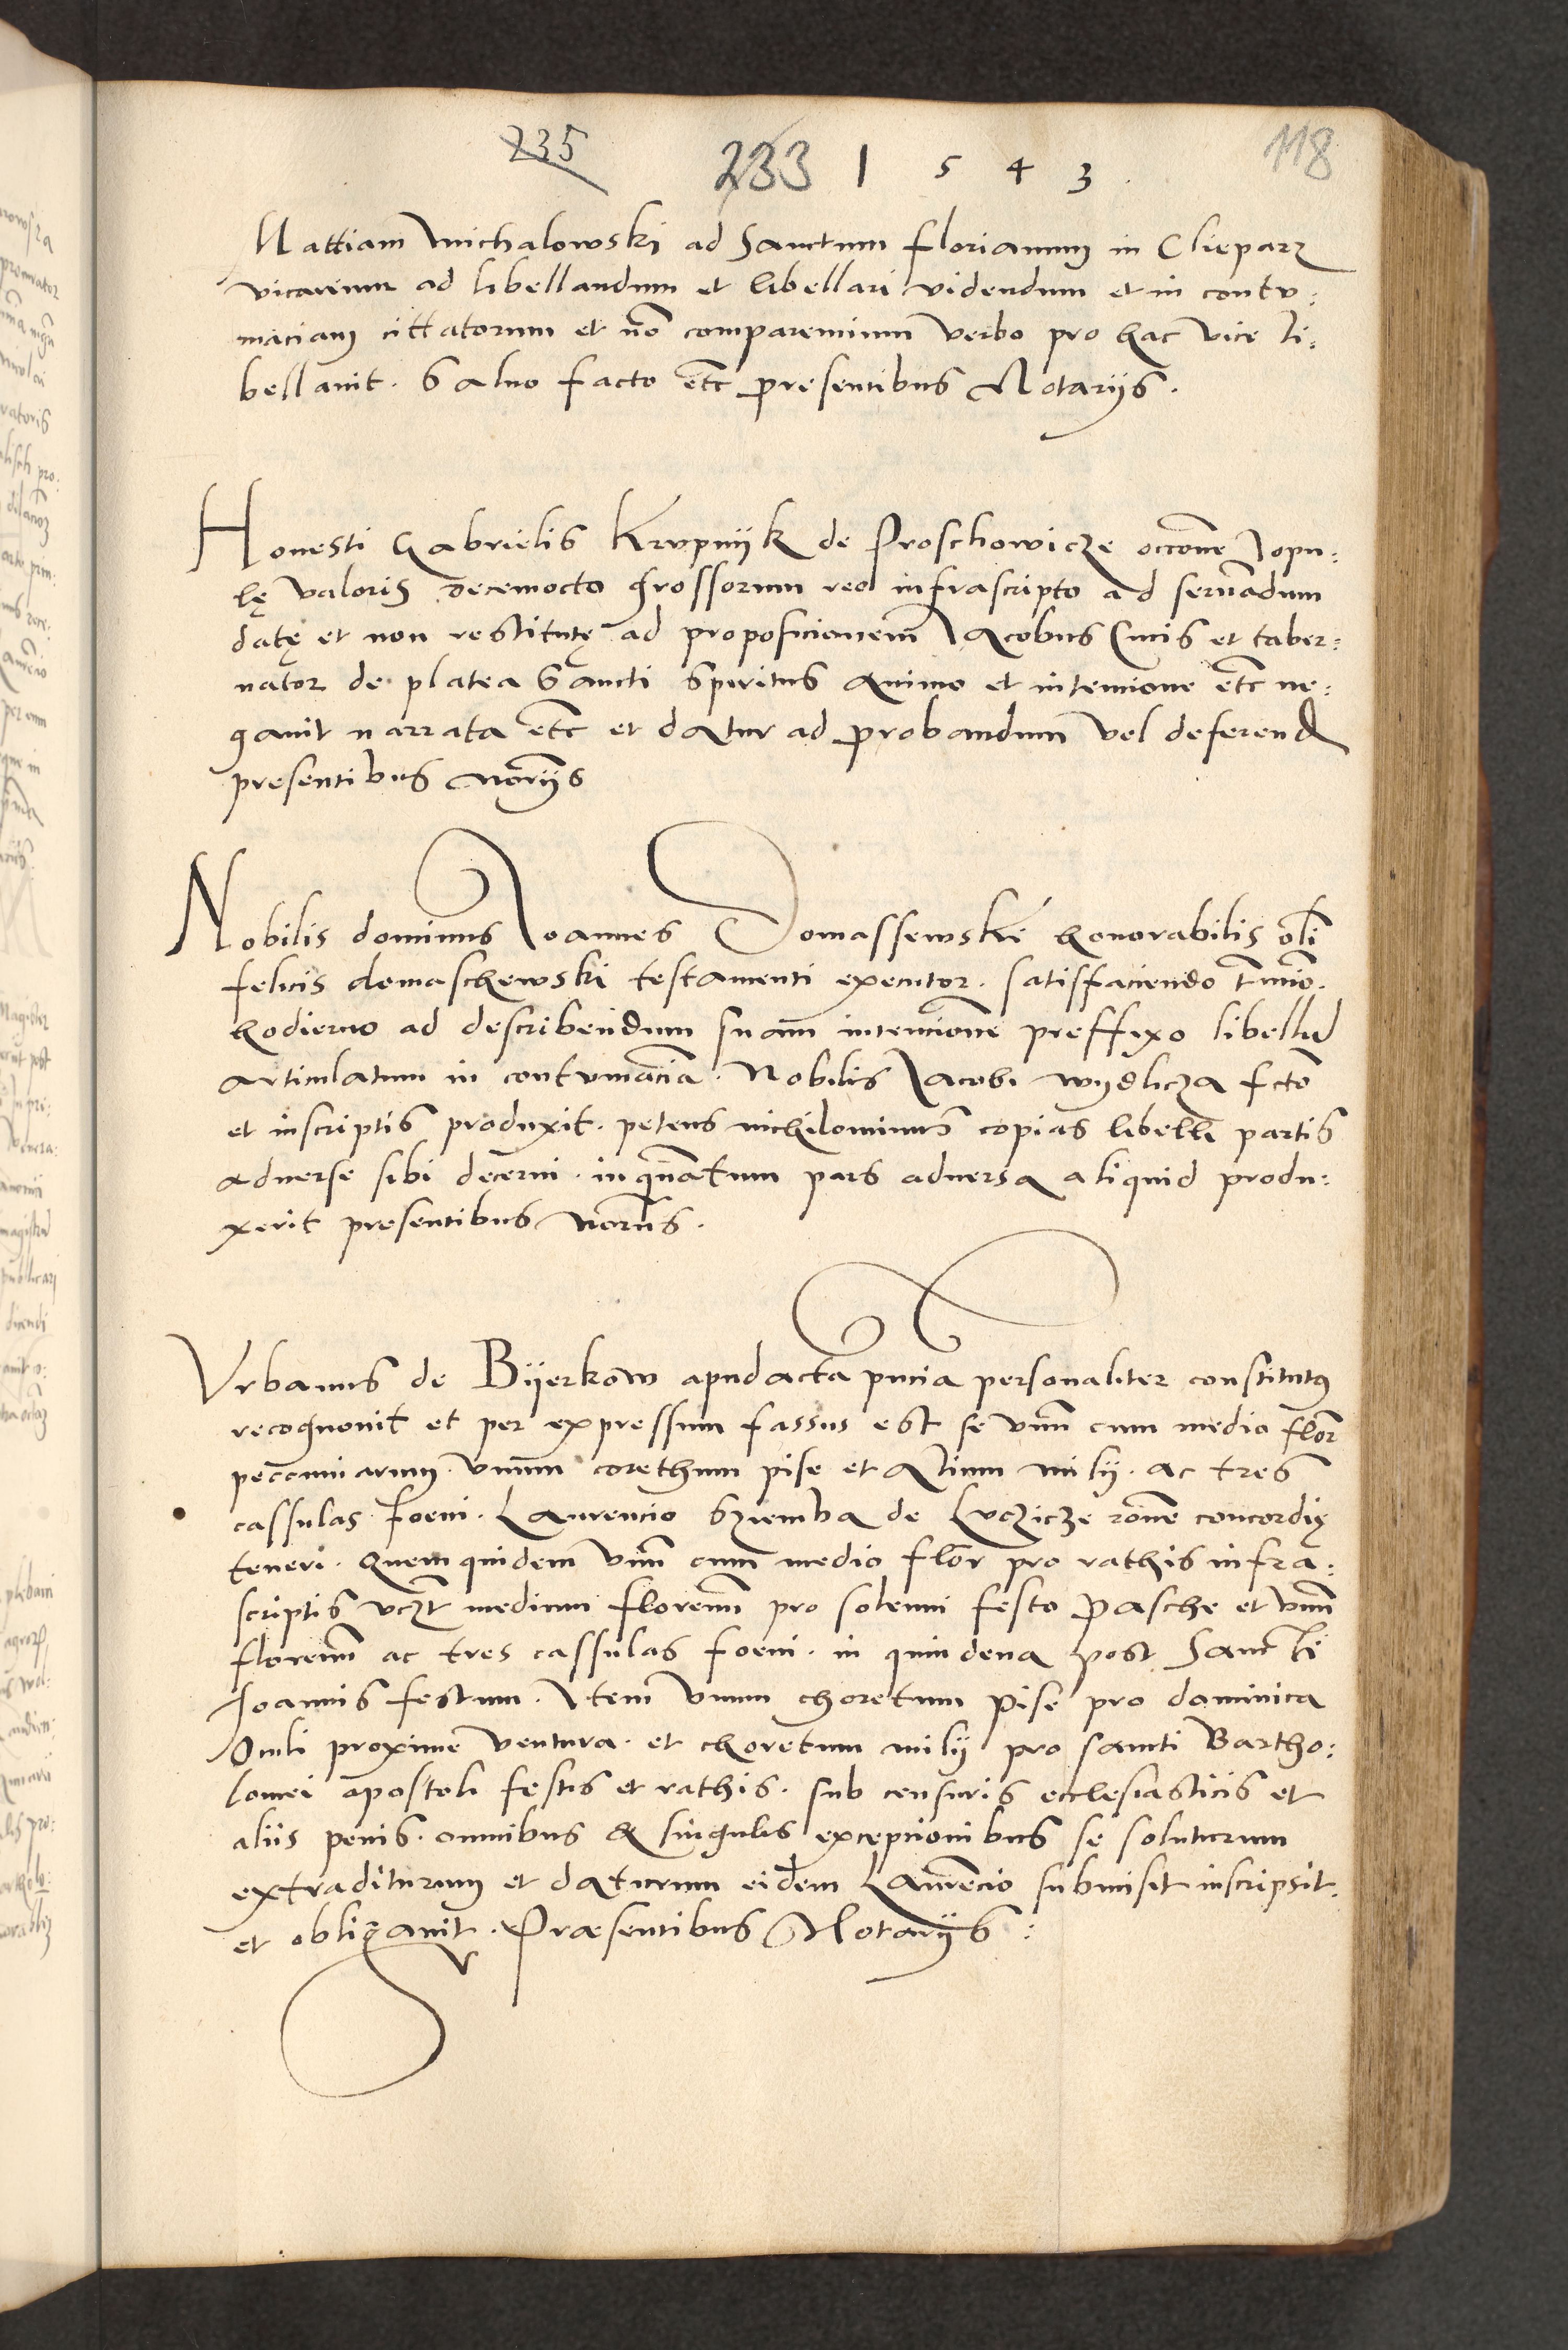 235 233 1 5 4 3 . 118
Mattiam Michalowski ad Sanctum florianum in Clieparz
vicarium ad libellandum et libellari videndum et in contu:
maciam cittatorum et nō comparemium verbo pro hac vice li:
bellauit . Saluo facto etc presentibus Notarijs .
Honesti Gabrielis Krupnijk de Proschowicze occōne Jopu:
lę valoris decemocto grossorum reo infrascripto ad seruādum
datę et non restitutę ad proposicionem Jacobus Ciuis et taber:
nator de platea Sancti Spiritus Animo et intencione etc ne:
gauit narrata etc et datur ad probandum vel deferend
presentibus Norijs
Nobilis dominus Joannes Domassewski honorabilis oli
felicis domaschewski testamenti executor . satisfaciendo tmino .
hodierno ad describendum suam intencione preffixo libellu
articulatum in contumacia . Nobilis Jacobi wijdlicza fcto
et inscriptis produxit . petens nichilominus copias libelli partis
aduerse sibi decerni . in quātum pars aduersa aliquid produ:
xerit presentibus Norijs .
Vrbanus de Bijerkow apud acta pncia personaliter constitutus
recognouit et per expressum fassus est se vnum cum medio flor
peccuniarum . vnum corethum pise et Alium milij . ac tres
cassulas foeni . Laurencio Sziemba de Luczicze rōne concordię
teneri . Quem quidem vnū cum medio flor pro rathis infra:
scriptis vczt medium florenū pro solenni festo Pasche et vnū
florenū ac tres cassulas foeni . in quindena post Sancti
Joannis festum . Item vnum choretum pise pro dominica
Oculi proxime ventura . et choretum milij pro sancti Bartho:
lomei apostoli festis et rathis . sub censuris ecclesiasticis et
aliis penis . omnibus & singulis exceptionibus se soluturum
extraditurum et daturum eidem Laurencio submisit inscripsit .
et obligauit . Præsentibus Notarijs :